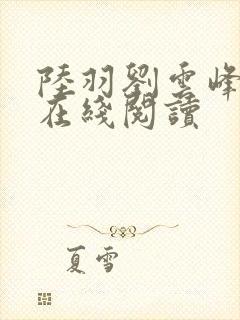 陸羽劉雲峰
在綫閱讀
夏雪